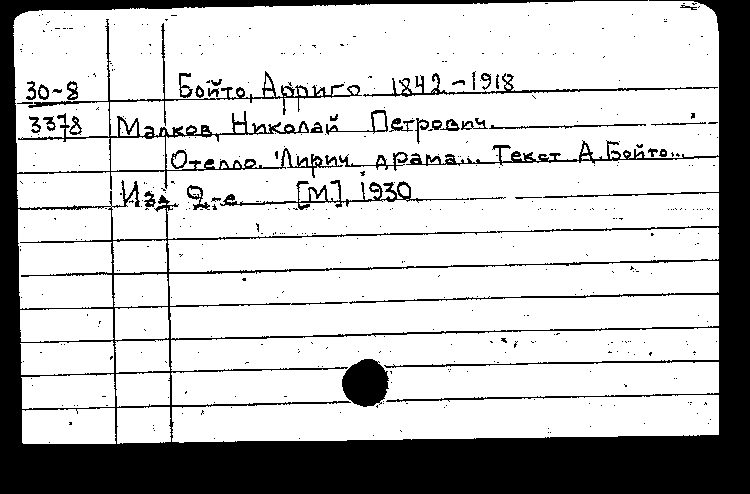 30-8 Бойто, Арриго 1842-1918
3378 Малков, Николай Петрович.
Отелло. Лирич. драма... Текст А. Бойто...
Изд. 2-е. [М.], 1930.